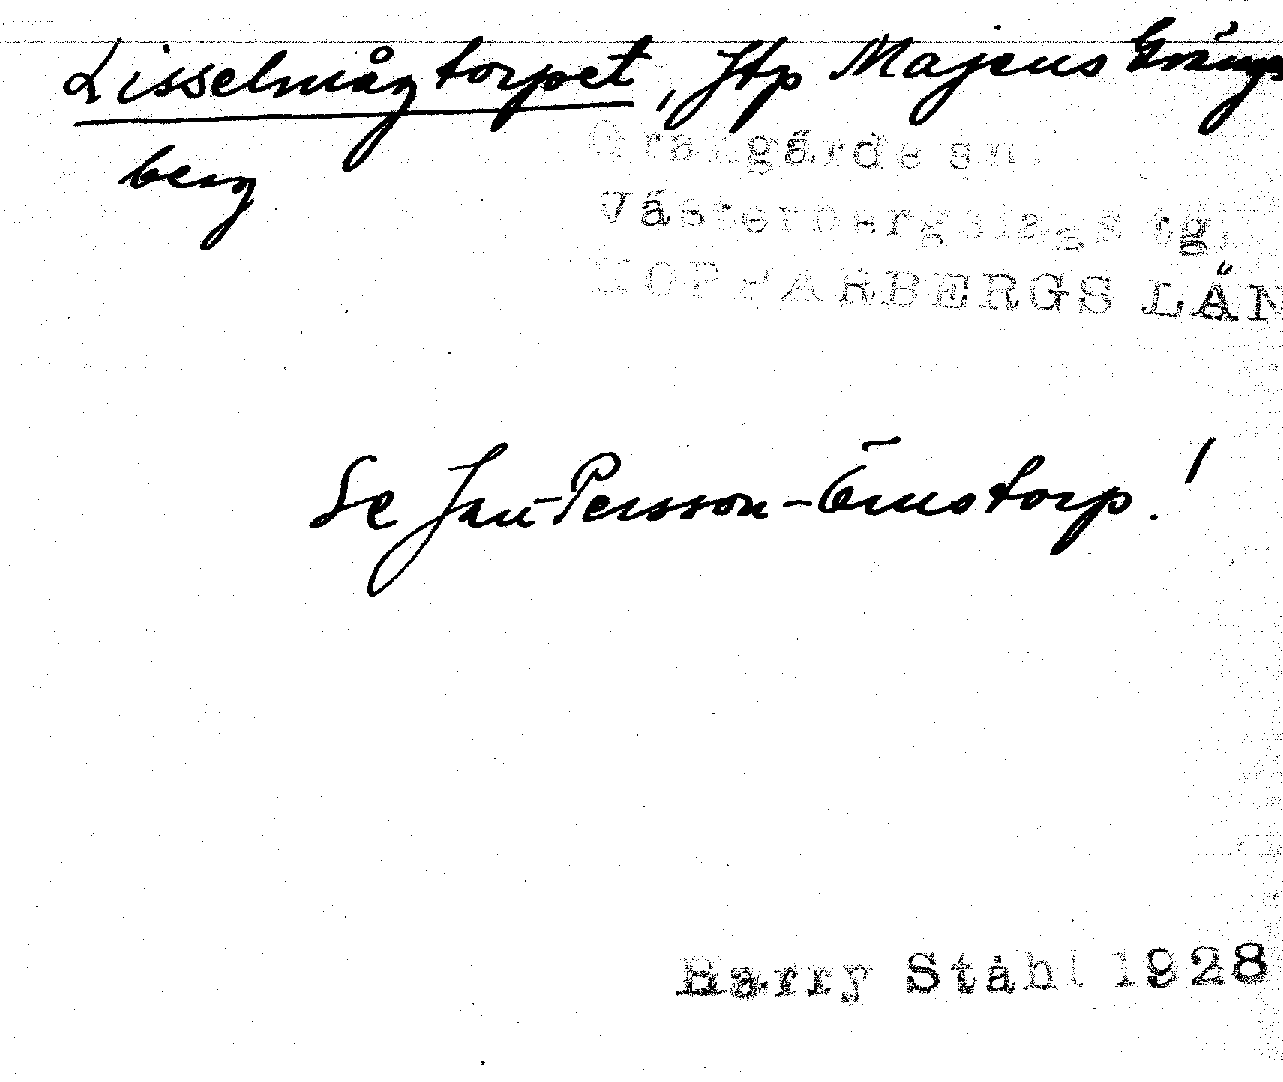 Lisselmågtorpet, Htp Majens Gräng
berg
Grangärde sn.
Västerbergslags tg.
KOPPARBERGS LÄN
Se Jan-Persson-Ernstorp!
Harry Ståhl 1928